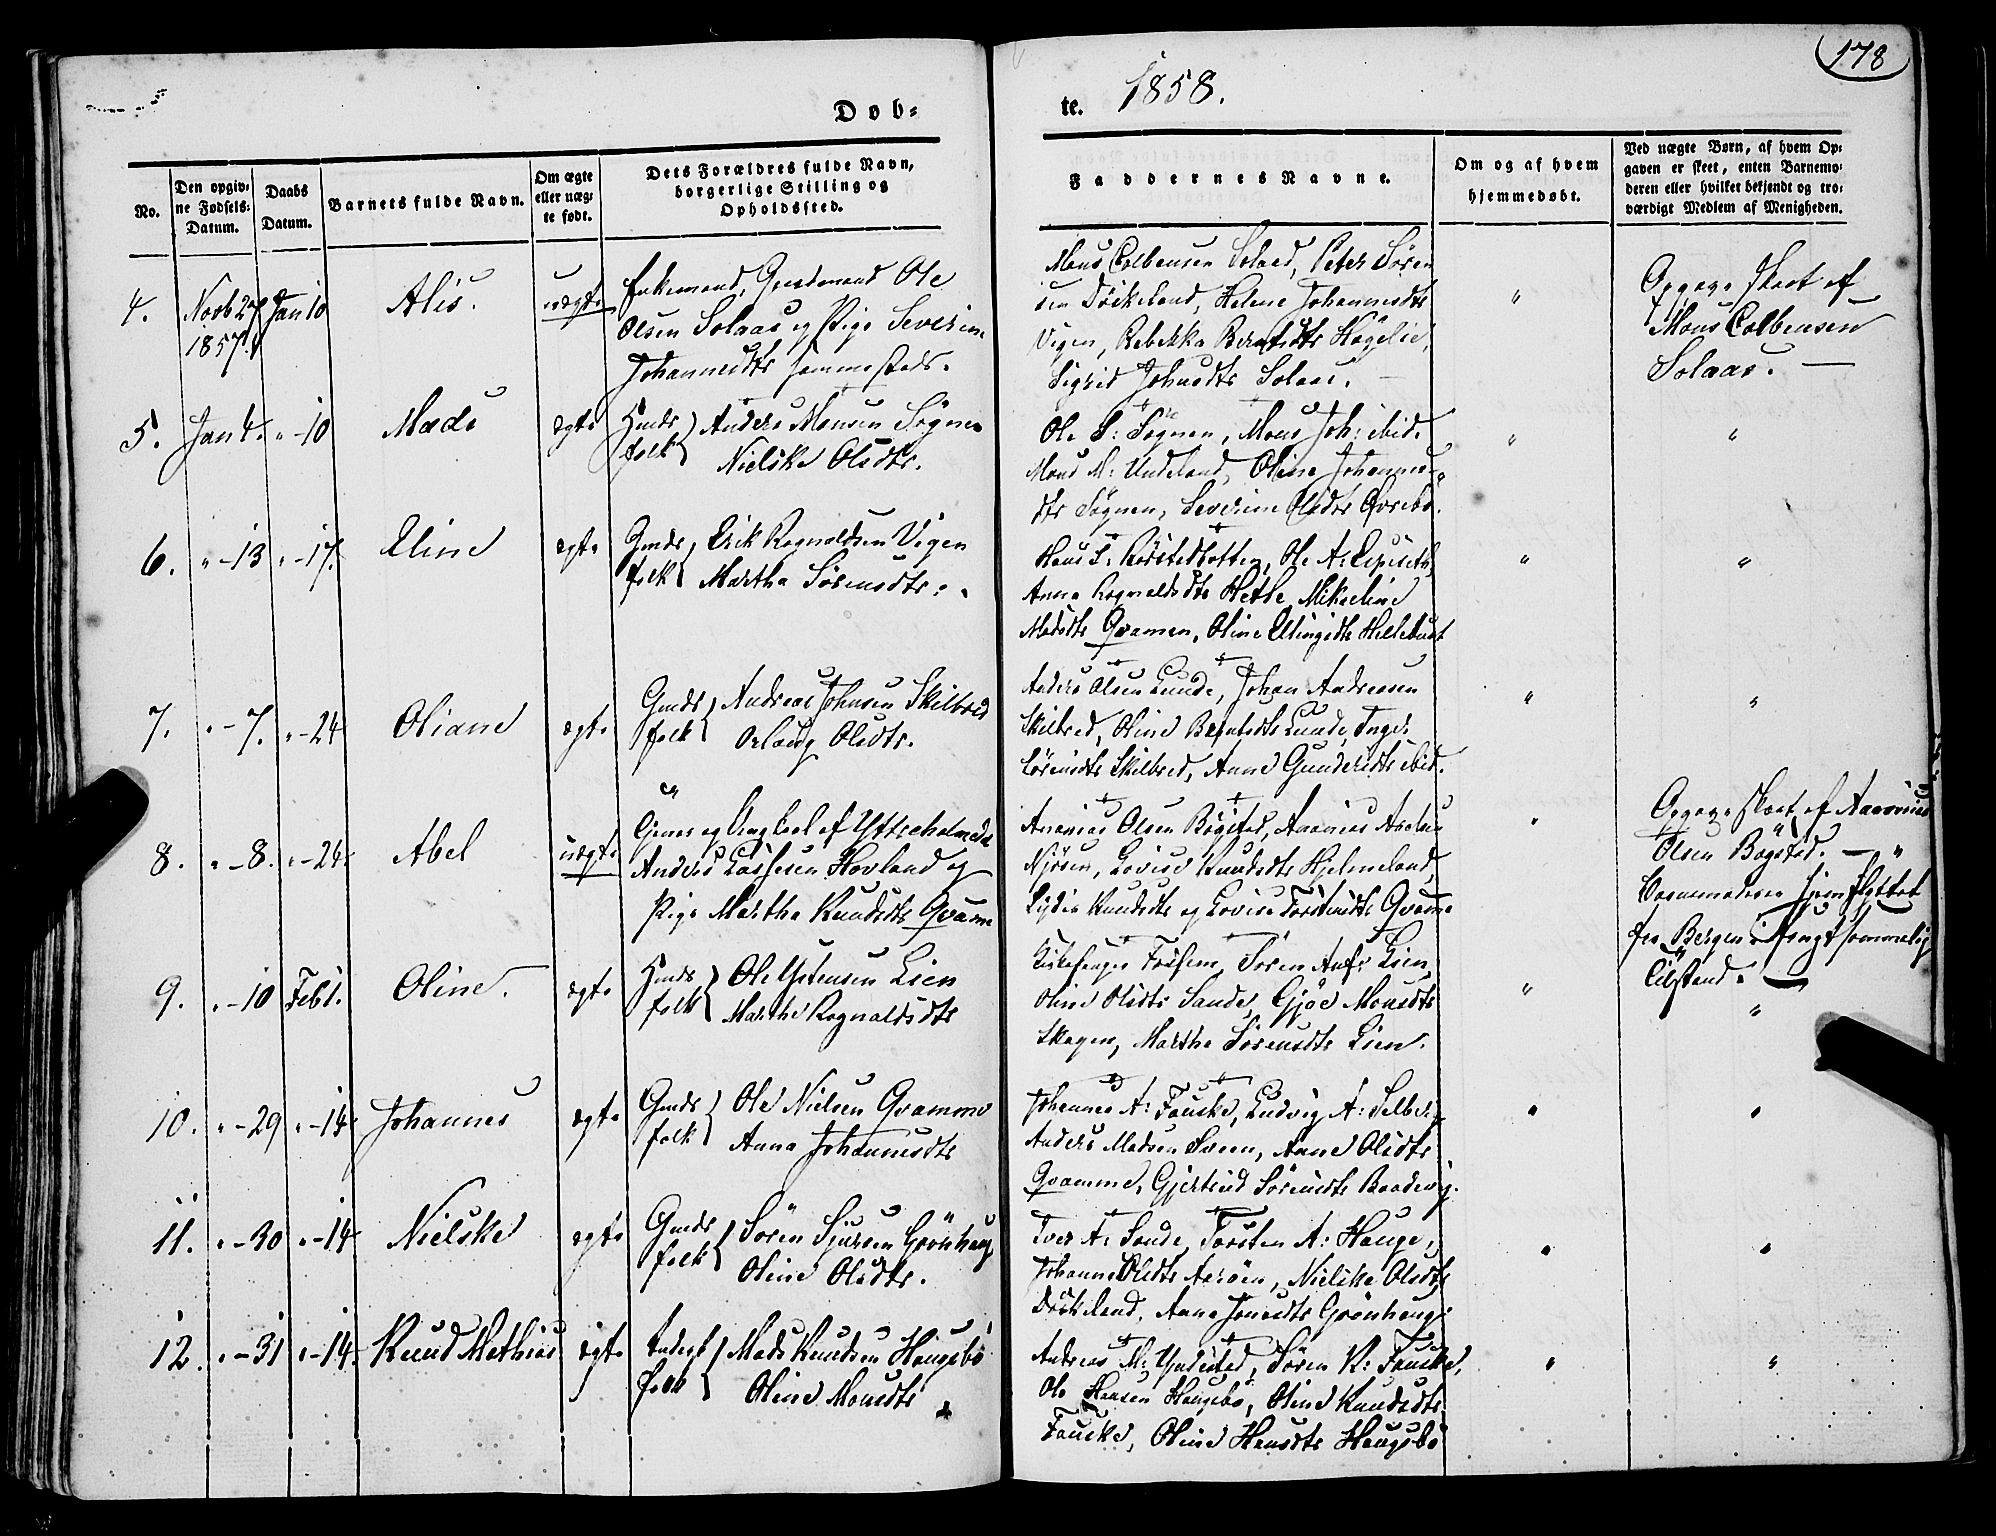 178
Dob-
te. 1858.
No.
Den opgiv-
ne Fødsels-
Datum.
Daabs
Datum.
Barnets fulde Navn.
Om ægte
eller uæg-
te født.
Dets Forældres fulde Navn,
borgerlige Stilling og
Opholdssted.
Faddernes Navne.
Om og af hvem
hjemmedøbt.
Ved uægte Børn, af hvem Op-
gaven er skeet, enten Barnemo-
deren eller hvilket bekjendt og tro-
værdigt Medlem af Menigheden.
4.
Novb 27
1857.
Jan 10
Alis.
uægte
Enkemand, Gaardmand Ole
Olsen Solaas og Pige Severine
Johannesdtr sammesteds.
Mons Colbensen Solaas, Peter Søren
sen Döskeland, Helene Johannesdtr
Vigen, Rebekka Berntsdtr Høgelie,
Sigrid Johnsdtr Solaas.
"
Opgave skeet af
Mons Colbensen
Solaas. —
5.
Jan 4.
" - 10
Mads
ægte
Gmds
folk
Anders Monsen Sögnen
Nielske Olsdtr.
Ole S: Sögnen, Mons Joh: ibid.
Mons M: Undeland, Oline Johannes-
dtr Sögnen, Severine Olsdtr Övrebö.
"
"
6.
" - 13
" - 17.
Eline
ægte
Gmds
folk
Erik Rognaldsen Vigen
Martha Sörensdtr.
Hans S: , Ole A: Espeseth,
Anna Rognaldsdtr Hetle, Mikaeline
Madsdtr Qvamen, Oline Ellingsdtr Hellebust
"
"
7.
" - 7.
" - 24
Oliane
ægte
Gmds
folk
Andreas Johnsen Skilbred
Orlaug Olsdtr.
Anders Olsen Lunde, Johan Andreasen
Skilbred, Oline Berntsdtr Lunde, Inger
Sörensdtr Skilbred, Anne Gundersdtr ibid.
"
"
8.
" - 8.
" - 24
Abel
uægte
og Ungkarl af Yttreholmedal
Anders Lassesen Hovland og
Pige Martha Knudsdtr Qvame
Ananias Olsen Bögstad, Ananias Axelsen
Njösen, Lovise Knudsdtr Hjelmeland,
Lydia Knudsdtr og Lovise Torstensdtr Qvame
"
Opgave skeet af
Olsen Bögstad. — "
Barnemoderen hjemflyttet
fra Bergen i frugtsommelig
Tilstand. —
9.
" - 10
Feb 1.
Oline.
ægte
Gmds
folk
Ole Ystensen Lien
Marthe Rognaldsdtr
Kirkesanger , Sören Anfi: Lien
Oline Olsdtr Sande, Gjöe Monsdtr
Skagen, Marthe Sörensdtr Lien.
"
"
10.
" - 29
" - 14
Johannes
ægte
Gmds
folk
Ole Nielsen Qvamme
Anna Johannesdtr
Johannes A: Fauske, Ludvig A: Selberg
Anders Madsen Sveen, Anne Olsdtr
Qvamme, Gjertrud Sörensdtr
"
"
11.
" - 30
" - 14
Nielske
ægte
Gmds
folk
Sören Sjursen Grönhaug
Oline Olsdtr.
Iver A: Sande, Torsten A: Hauge,
Johanne Olsdtr Aaröen, Nielske Olsdtr
Döskeland, Anna Jonsdtr Grönhaug.
"
"
12.
" - 31
" - 14.
Knud Mathias
ægte
Inderst
folk
Mads Knudsen Haugsbö
Oline Monsdtr
Andreas M: Yndestad, Sören K: Fauske,
Ole Hansen Haugsbö, Oline Knudsdtr
Fauske, Oline Hansdtr Haugsbö
"
"